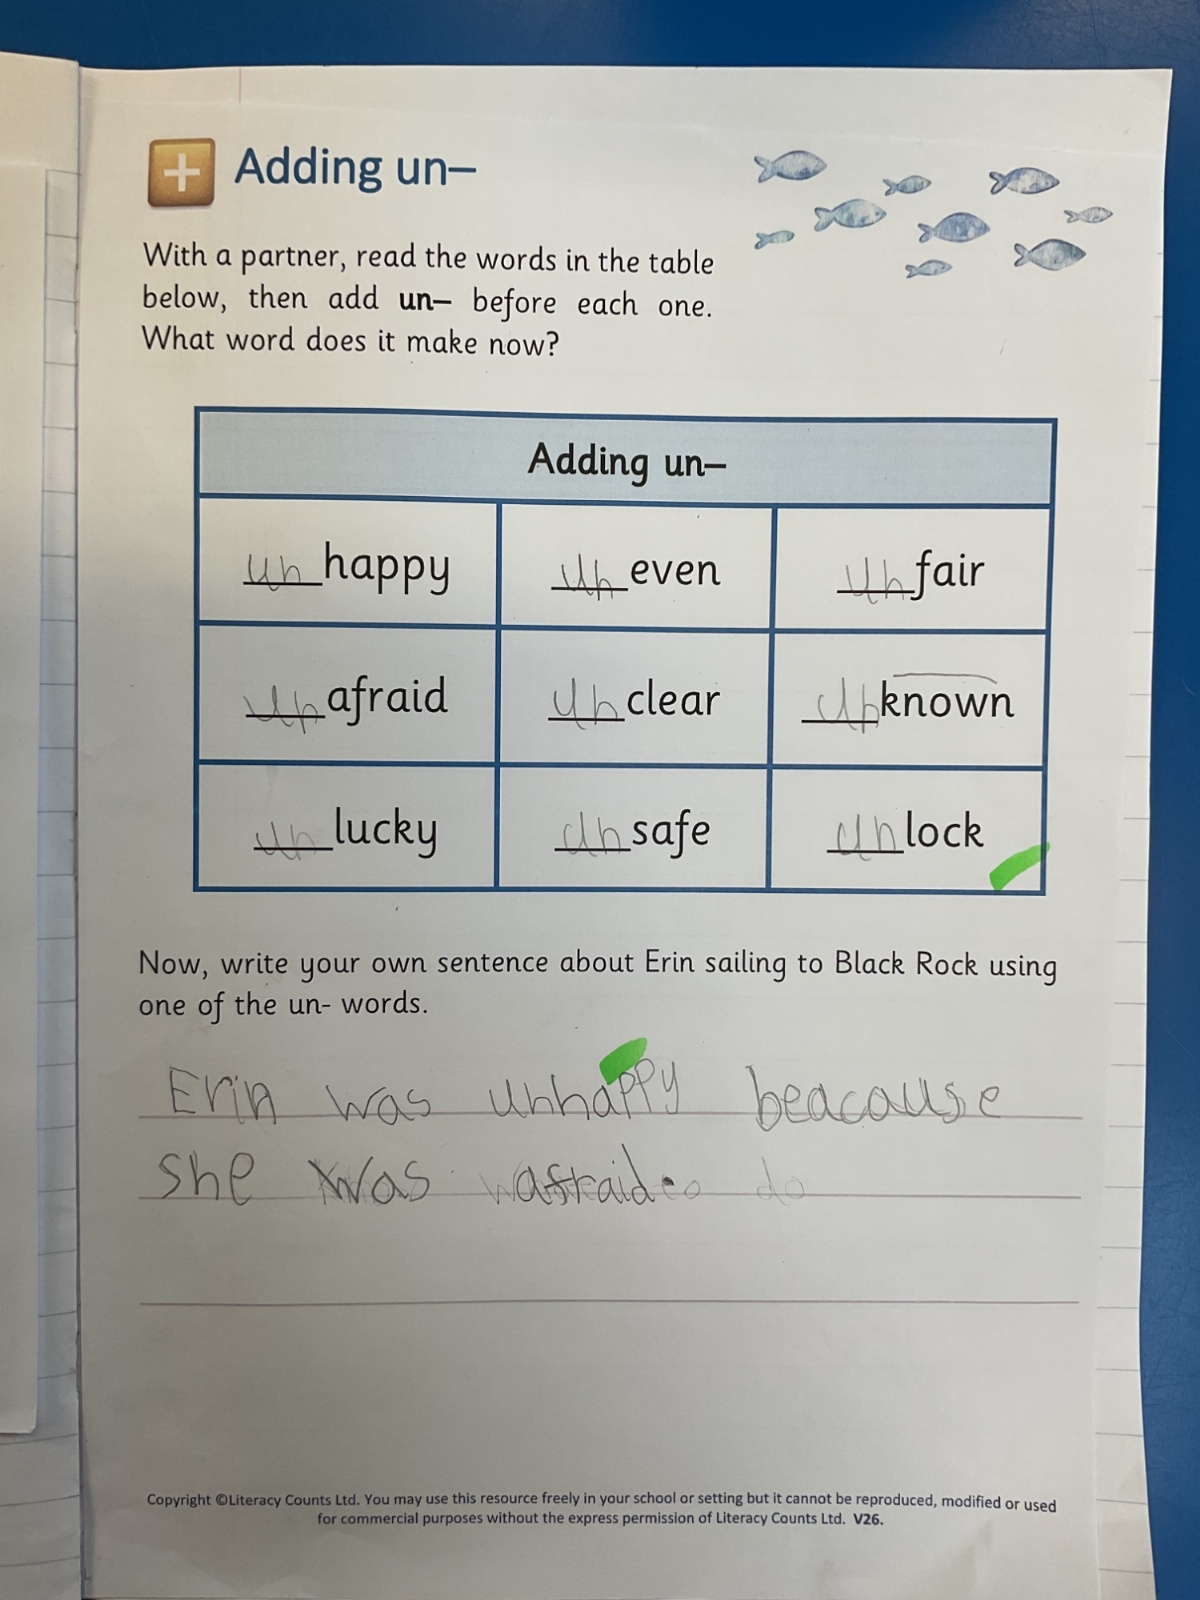 Adding un–
With a partner, read the words in the table
below, then add un– before each one.
What word does it make now?
Adding un–
unhappy uneven unfair
unafraid unclear unknown
unlucky unsafe unlock
Now, write your own sentence about Erin sailing to Black Rock using
one of the un- words.
Erin was unhappy beacause
she was afraid
Copyright ©Literacy Counts Ltd. You may use this resource freely in your school or setting but it cannot be reproduced, modified or used
for commercial purposes without the express permission of Literacy Counts Ltd. V26.